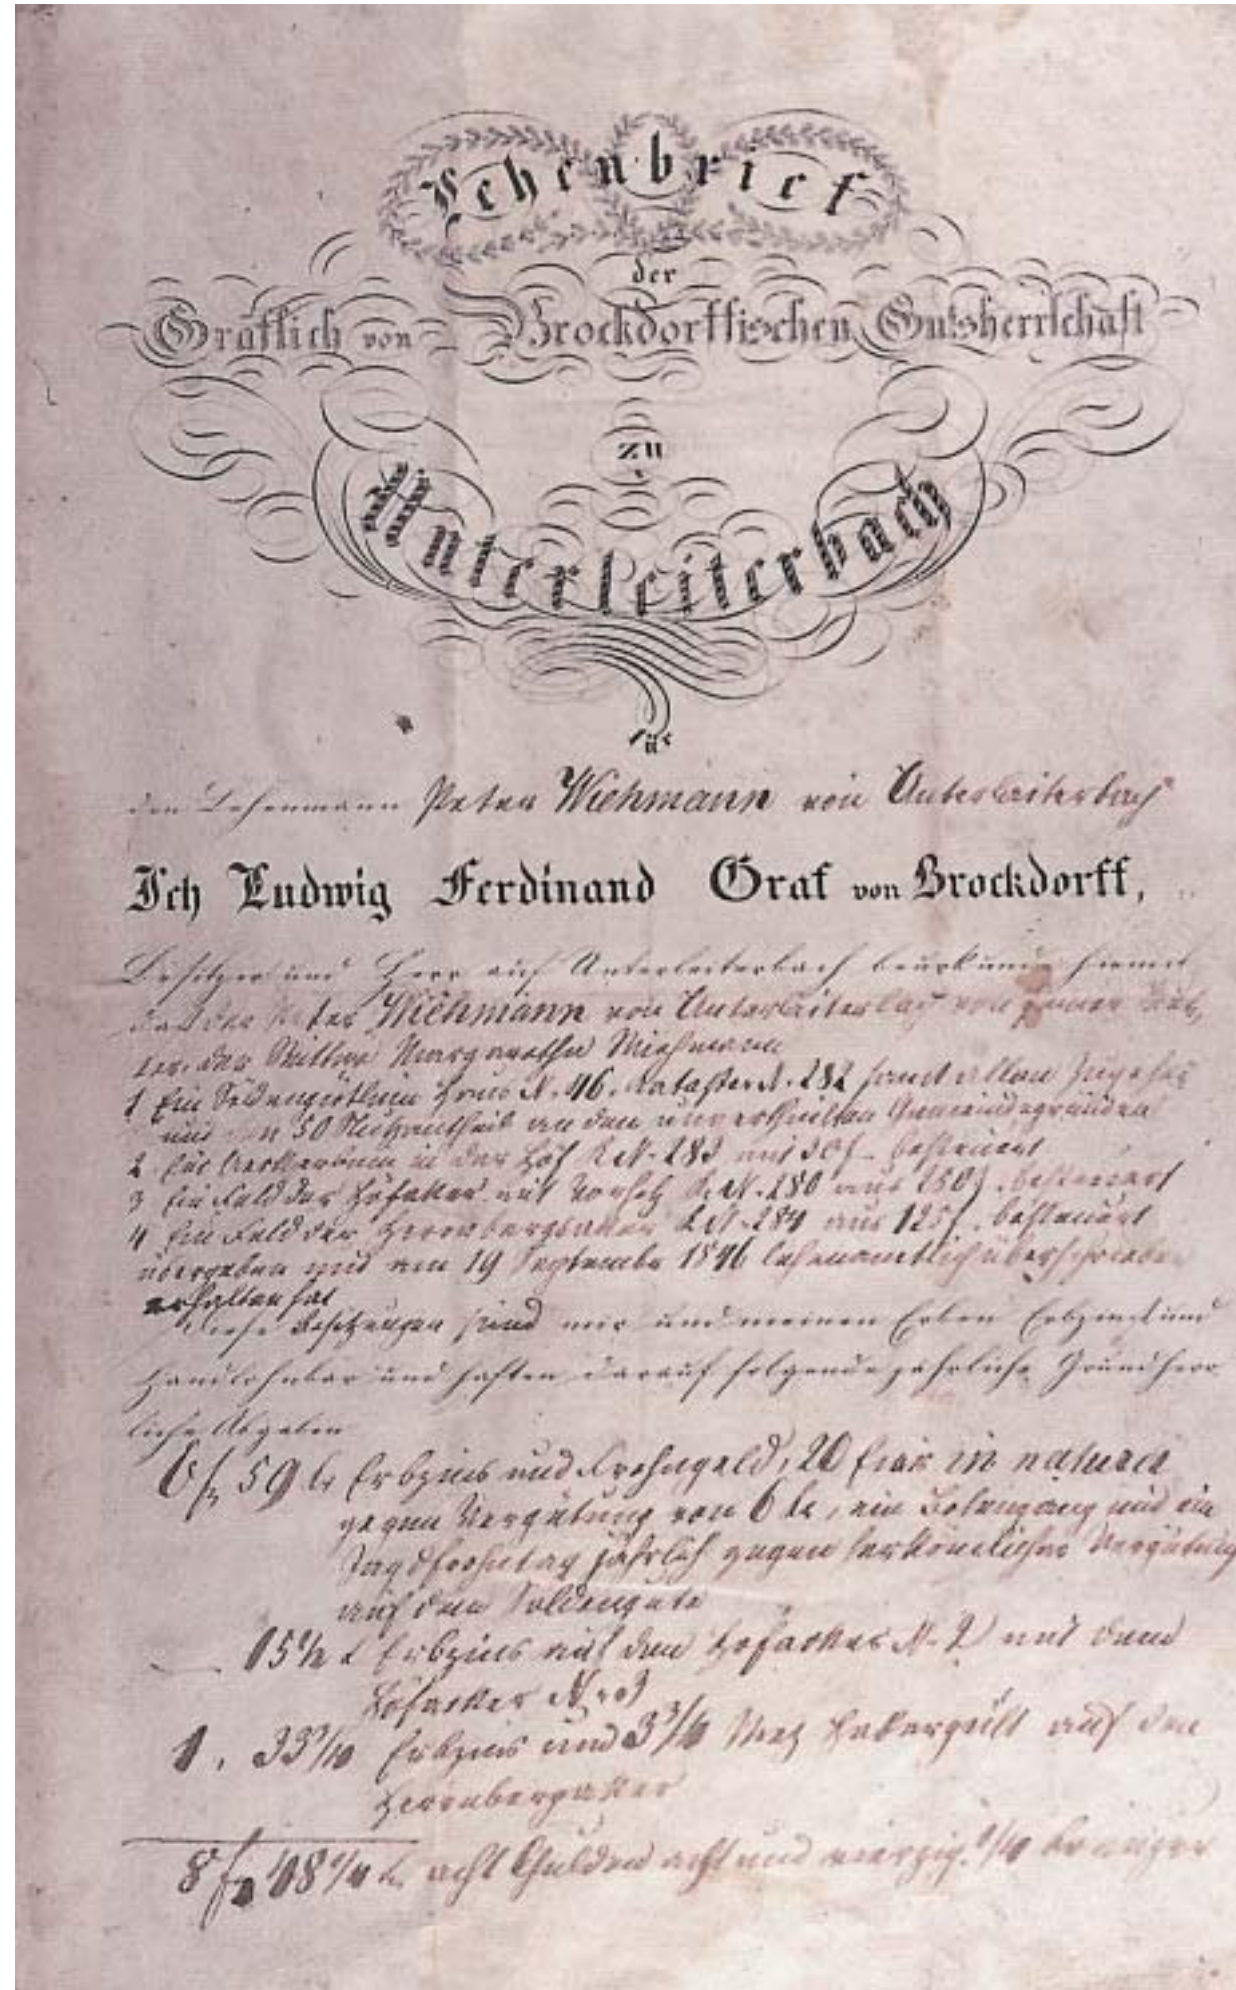 Lehenbrief
der
Gräflich von Brockdorffischen Gutsherrschaft
zu
Unterleiterbach
für
den Lehenmann Peter Wiehmann von Unterleiterbach
Ich Ludwig Ferdinand Graf von Brockdorff,
Besitzer und Herr auf Unterleiterbach beurkunde hiemit
daß der Peter Wiehmann von Unterleiterbach von seiner Mut,
ter, der Wittwe Margaretha Wiehmann
1 Ein Söldengütlein Haus N. 46. Kataster N. 282 samt allen
und 50 an den unvertheilten Gemeindegründen
2 in der Höf K.N. 283 mit 30 f. besteuert
3 Ein Feld der Höfaker mit K.N. 280 aus 250 f. besteuert
4 Ein Feld der Herrnbergsaker K.N. 284 aus 125 f. besteuert
übergeben und am 19 September 1846 lehenamtlich überschrieben
erhalten hat
Diese Besitzungen sind mir und meinen Erben Erbzins und
Handlohnbar und haften darauf folgende jährliche Grundherr
liche Abgaben
6 f. 59 kr Erbzins und Frohngeld, 20 Eier in natura
gegen Vergütung von 6 kr, ein Botengang und ein
Jagdfrohntag jährlich gegen herkömmliche Vergütung
auf dem Soldengute
15 1/2 Erbzins auf dem Hofacker N. 2 und dem
Höfacker N. 3
1. 33 3/4 Erbzins und 3 3/4 Metz Habergült auf den
Herrnbergaker
8 f. 48 1/4 kr. acht Gulden acht und vierzig 1/4 Kreuzer